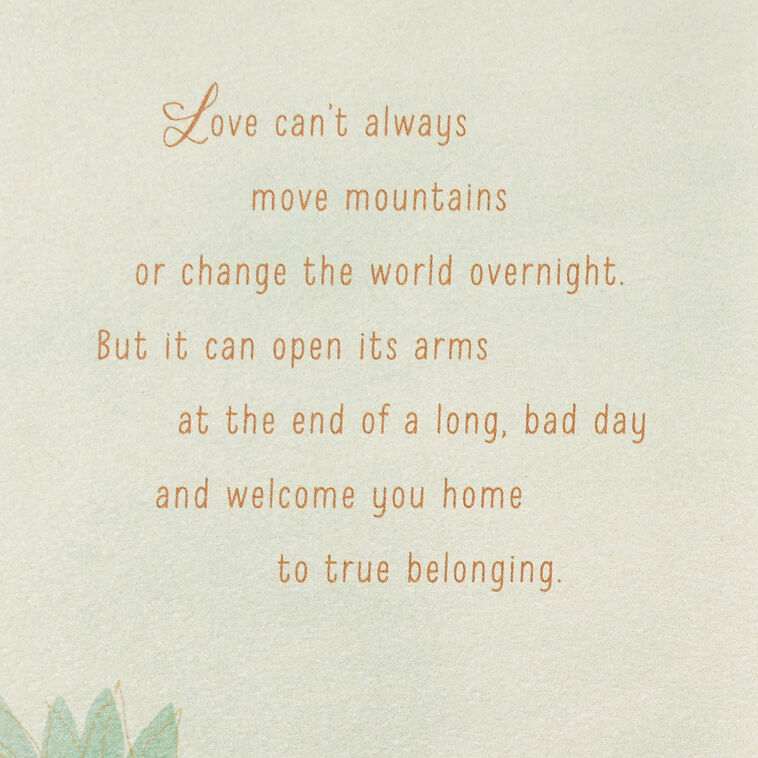 Love can't always
move mountains
or change the world overnight.
But it can open its arms
at the end of a long, bad day
and welcome you home
to true belonging.